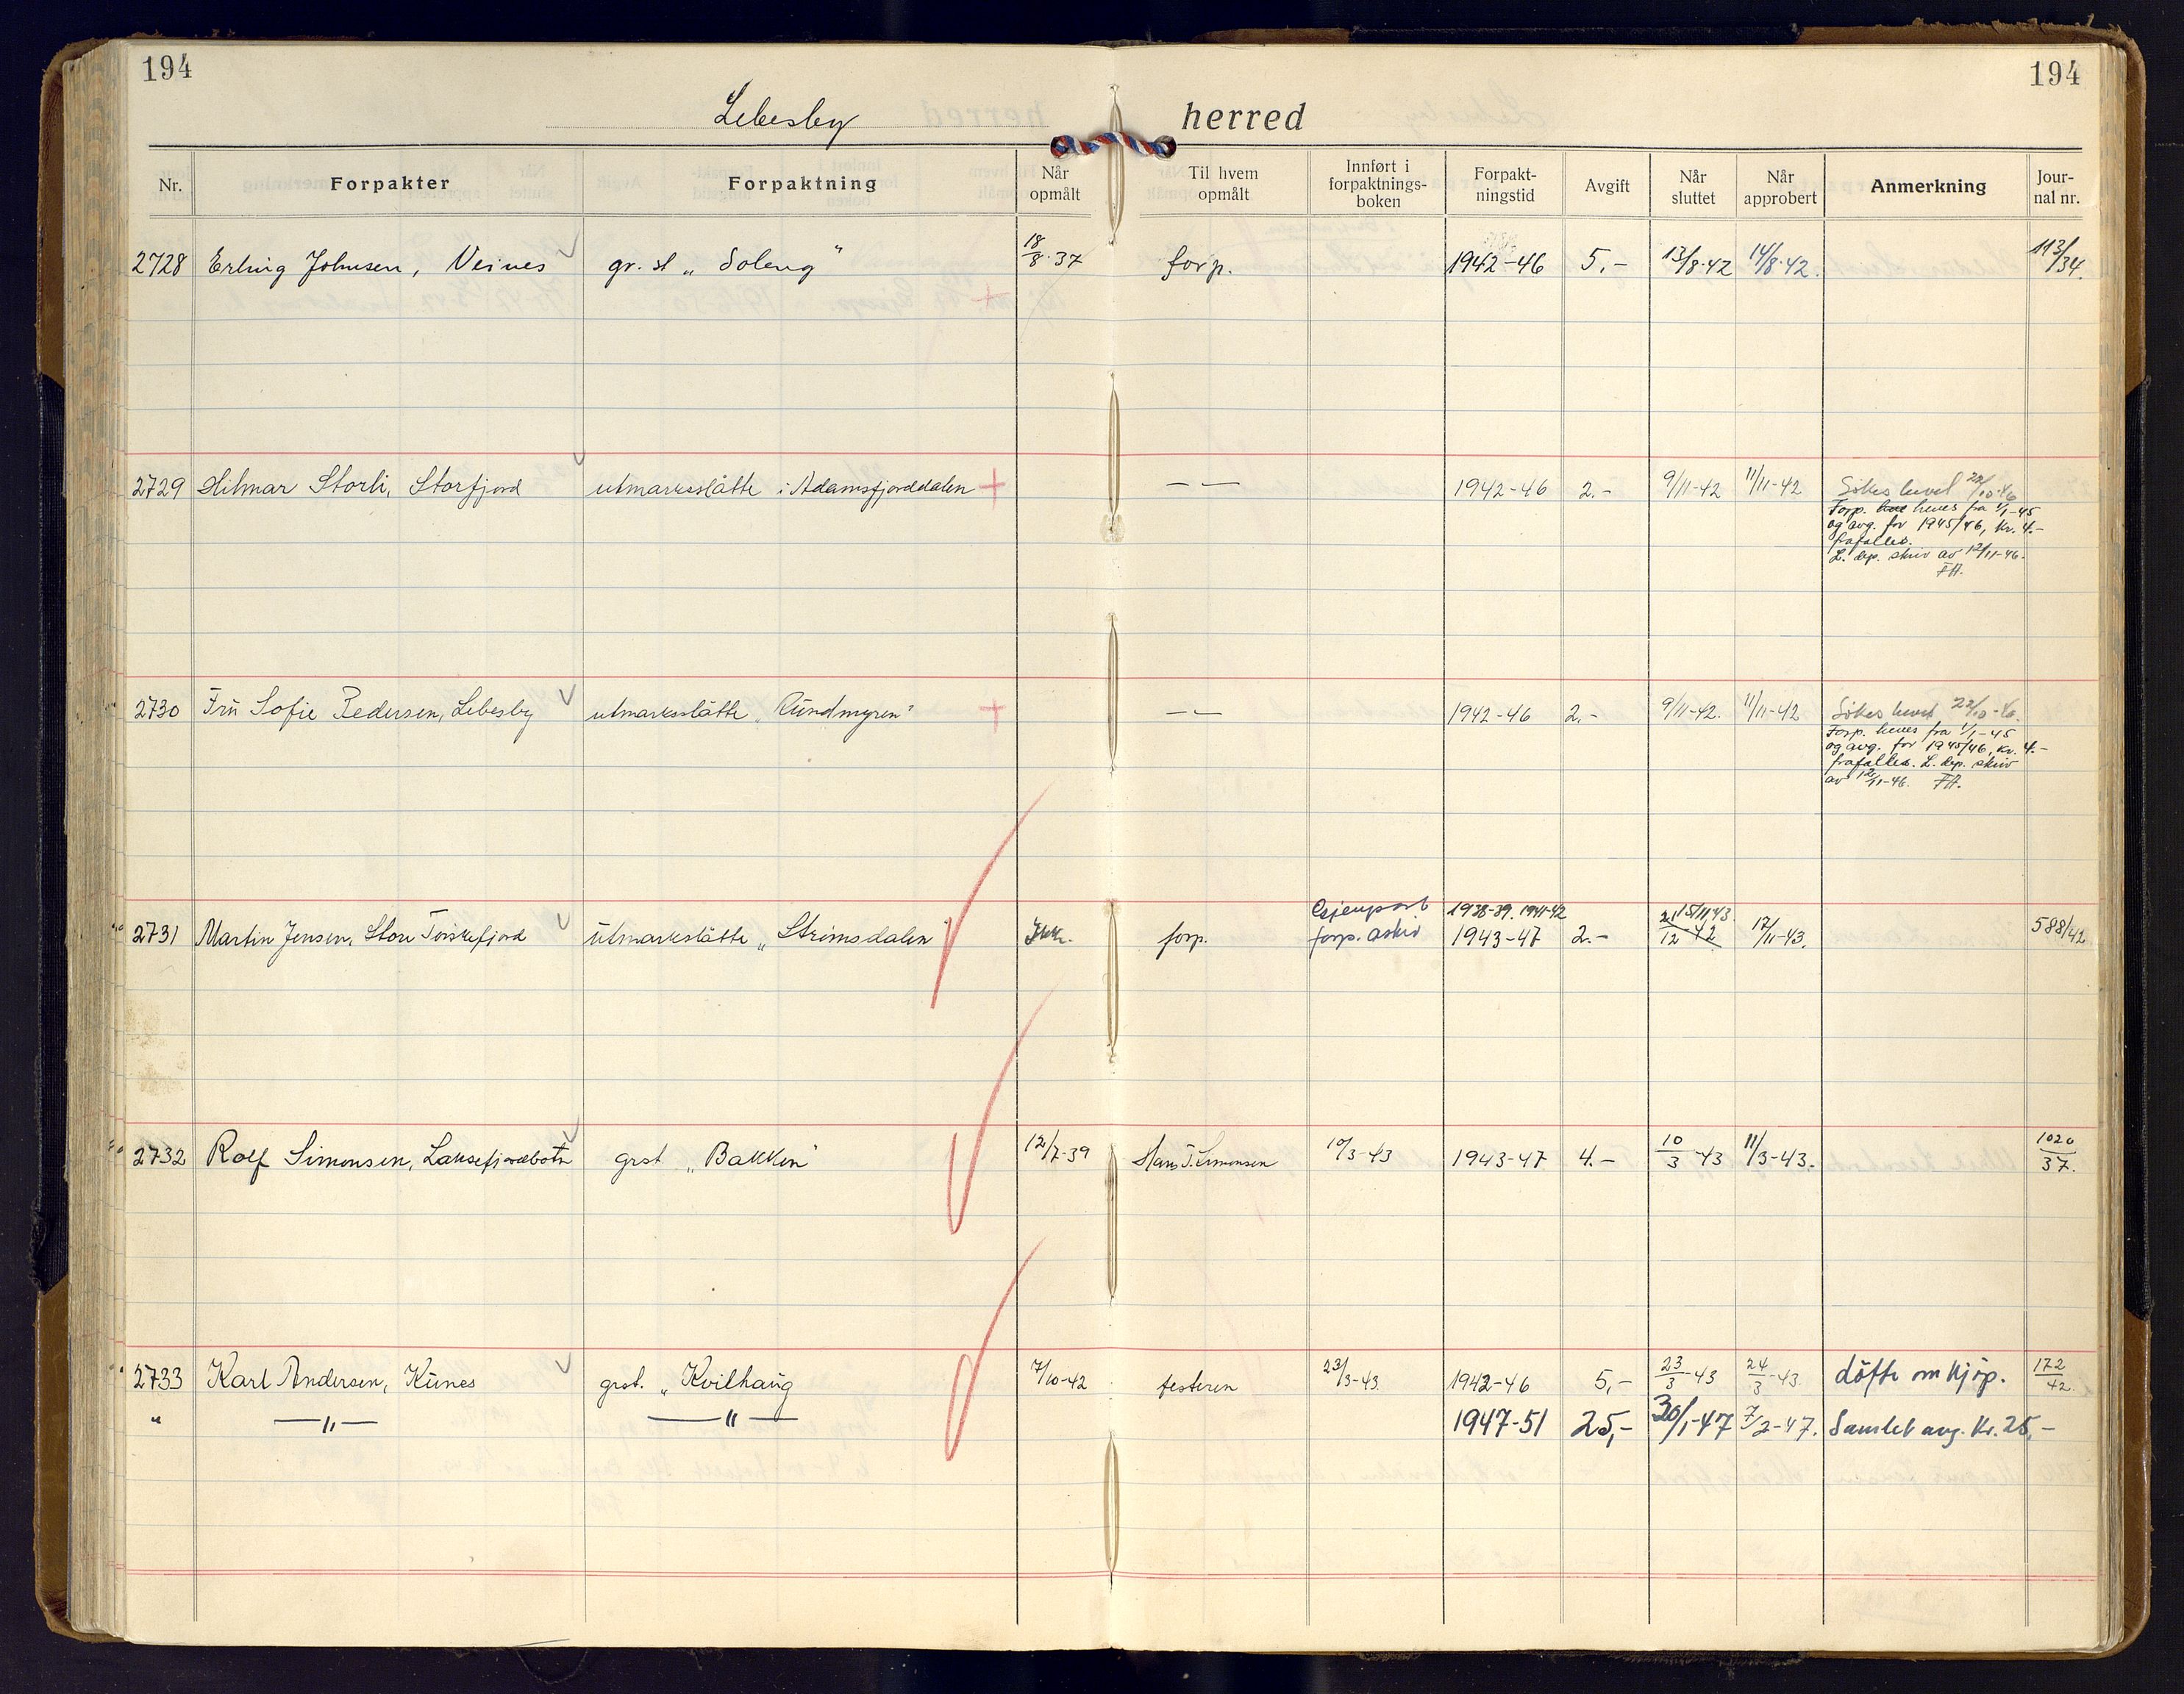 194
194
Lebesby herred
Nr. Forpakter Forpaktning Når opmålt Til hvem opmålt Innført i forpaktnings-boken Forpakt-ningstid Avgift Når sluttet Når approbert Anmerkning Jour-nal nr.
2728 Erling Johnsen, Veines gr. st „ Soleng " 18/8-37 forp. 1942-46 5,- 13/8-42 14/8-42. 113/34.
2729 Hilmar Storli, Storfjord utmarksslåtte i Adamsfjorddalen + — — 1942-46 2.- 9/11-42 11/11-42 Sökes hevet 22/10-46
Forp. heves fra 1/1-45
og avg. for 1945/46, kr. 4.-
frafalles.
L. dep. skriv av 12/11-46.
FH.
2730 Frü Sofie Pedersen, Lebesby utmarksslåtte „Rundmyren" + — — 1942-46 2.- 9/11-42. 11/11-42 Sökes hevet 22/10-46.
Forp. heves fra 1/1-45
og avg. for 1945/46, kr. 4.-
frafalles. L. dep. skriv
av 12/11-46. FH.
1938-39. 1941-42 15/11.43.
2731 Martin Jensen, Store Torskefjord ütmarkslåtte „ Strimsdalen" Ikk. forp. forp. 1943-47 2.- 21/12-42 17/11-43. 588/42
2732 Rolf Simonsen, Laksefjordbotn grst „Bakken" 12/7-39 Hans T. Simonsen 10/3-43 1943-47 4.- 10/3-43 11/3-43. 1020/37.
2733 Karl Andersen, Künes grst. „Kvilhaüg 7/10-42 festeren 23/3-43 1942-46 5,- 23/3-43 24/3-43. Löfte om kjöp. 172/42.
" —"— —"— 1947-51 25,- 30/1-47 7/2-47. Samlet avg. Kr. 25,-